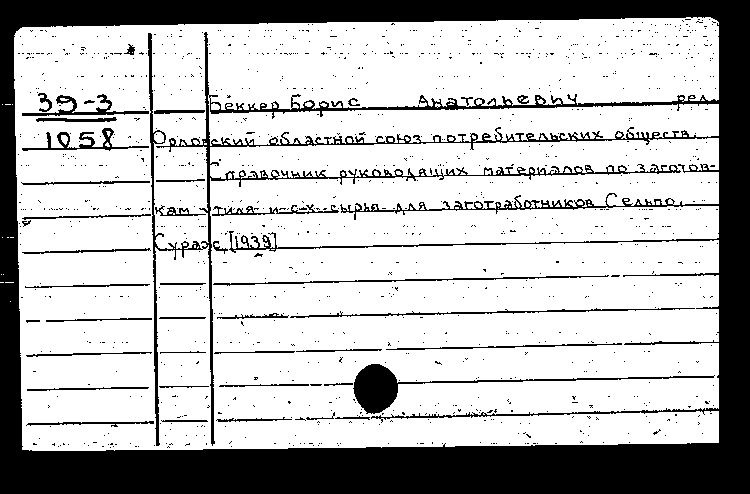 39-3 Беккер Борис Анатольевич ред.
1058 Орловский областной союз потребительских обществ.
Справочник руководящих материалов по заготов-
кам утиля и с-х. сырья для заготработников Сельпо.
Сураж [1939]